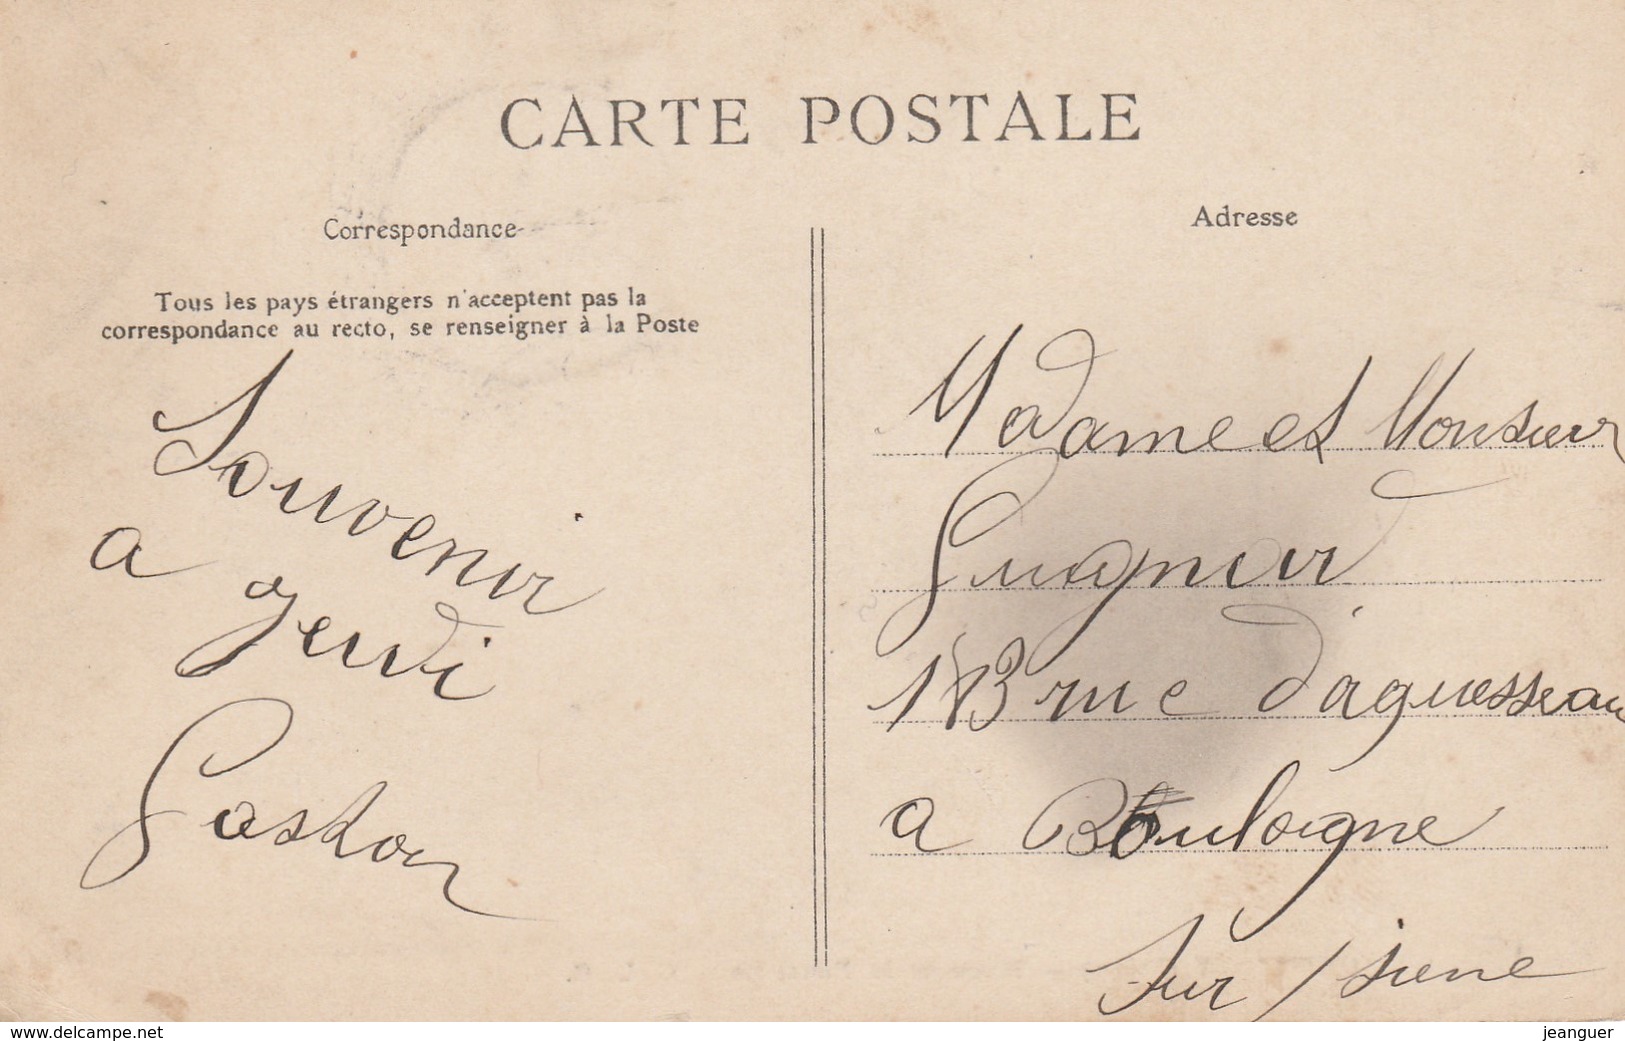 CARTE POSTALE
Correspondance
Tous les pays étrangers n'acceptent pas la
correspondance au recto, se renseigner à la Poste
Souvenir
a jeudi
Gaston
Adresse
Madame et Monsieur
rue d'aguesseau
a Boulogne
Sur / siene
www.delcampe.net
jeanguer